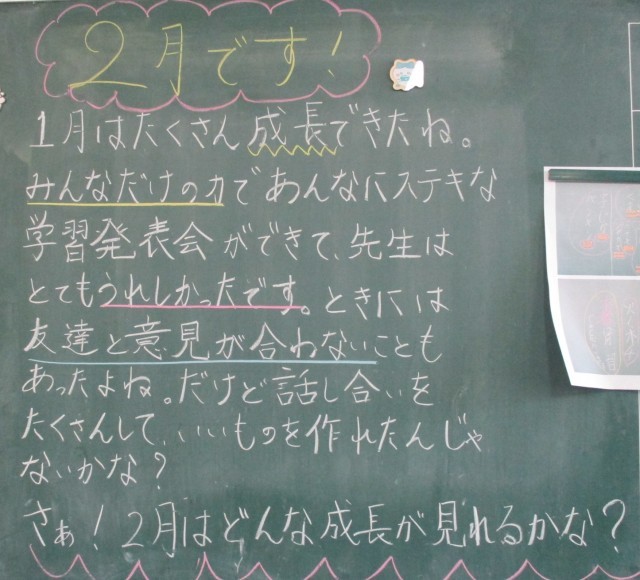 2月です!
1月はたくさん成長できたね。
みんなだけの力であんなにステキな
学習発表会ができて、先生は
とてもうれしかったです。ときには
友達と意見が合わないことも
あったよね。だけど話し合いを
たくさんして、いいものを作れたんじゃ
ないかな?
さぁ!2月はどんな成長が見れるかな?